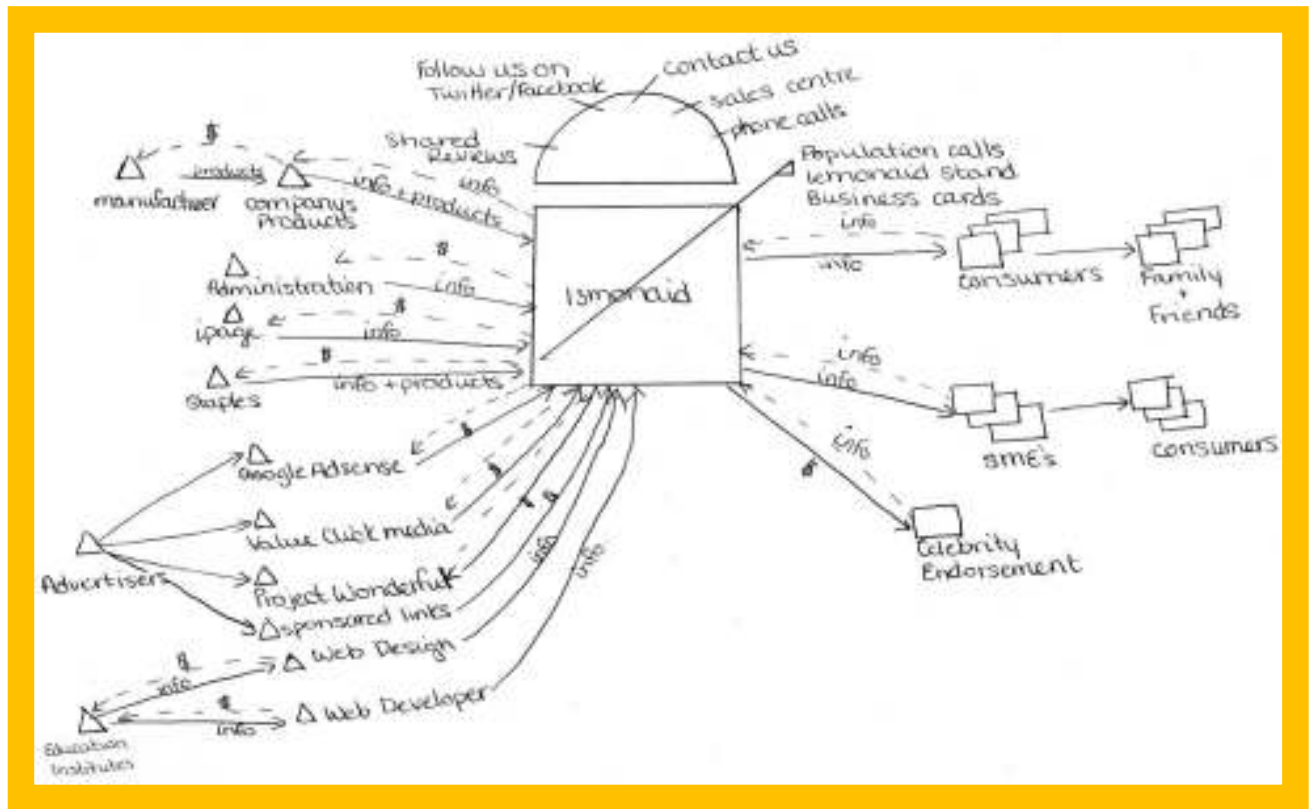 Follow us on
Twitter/Facebook
Contact us
Sales centre
phone calls
Shared
Reviews
Population calls
lemonaid stand
Business cards
$
products
manufacturer
companys
Products
info
info + products
$
Administration
info
$
ipage
info
$
Staples
info + products
Ismonaid
info
info
Consumers
Family
+
Friends
info
info
SME's
Consumers
info
$
Celebrity
Endorsement
$
Google Adsense
$
Value Click media
$
$
Advertisers
Project Wonderful
sponsared links
info
info
Web Design
$
info
Web Developer
$
info
Education
Institutes